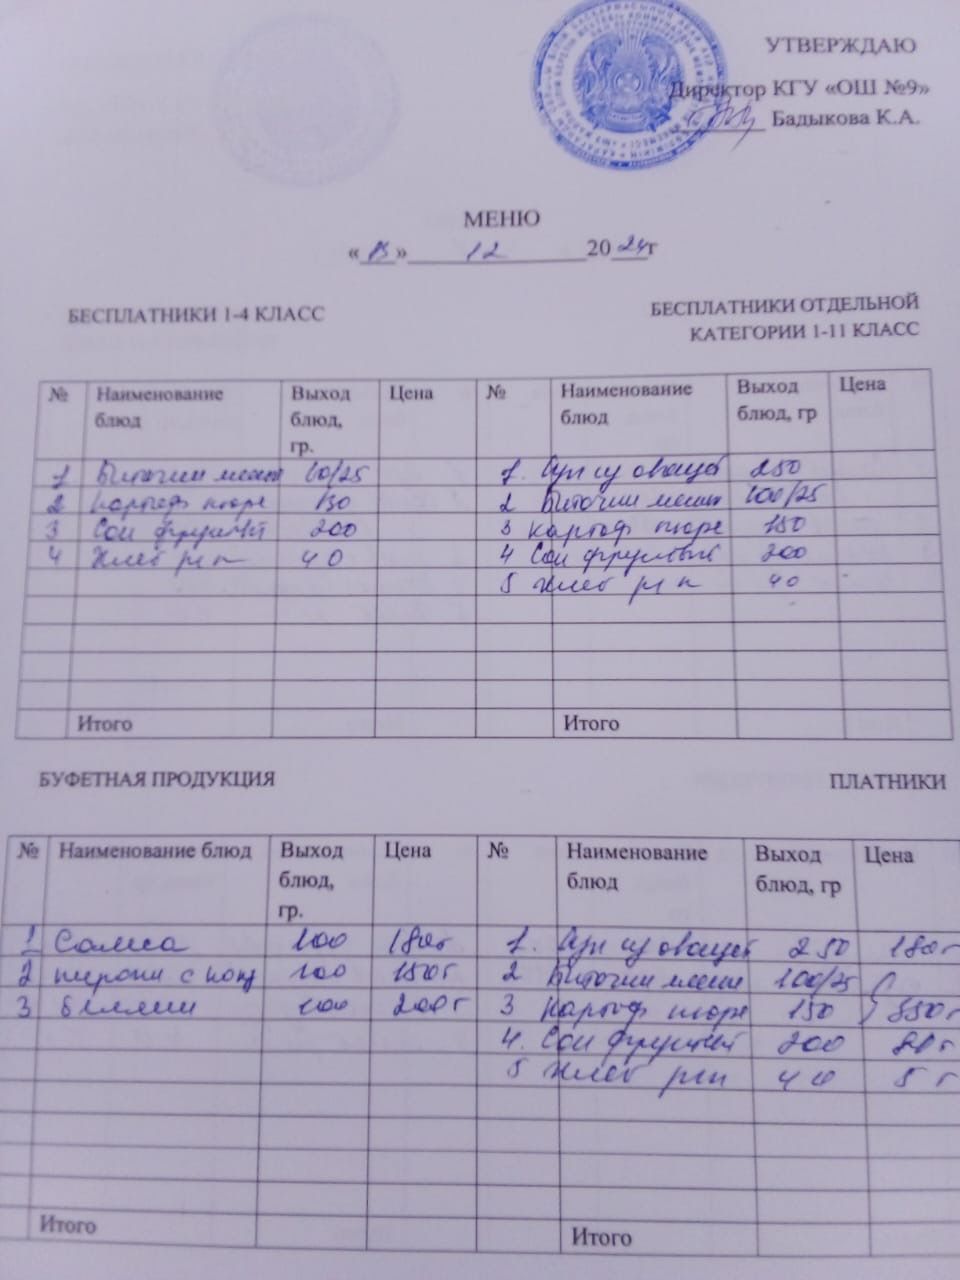 УТВЕРЖДАЮ
Директор КГУ «ОШ №9»
Бадыкова К.А.
МЕНЮ
« » 12 2024г
БЕСПЛАТНИКИ 1-4 КЛАСС
БЕСПЛАТНИКИ ОТДЕЛЬНОЙ
КАТЕГОРИИ 1-11 КЛАСС
№ Наименование блюд Выход блюд, гр. Цена № Наименование блюд Выход блюд, гр Цена
1 Биточки мясн 1. Суп из овощей 250
2 картоф пюре 150 2 Биточки мясн 100/25
3 Сок фруктов 200 3 картоф пюре 150
4 Хлеб рж п 40 4 Сок фруктовый 200
5 Хлеб рж п 40
Итого Итого
БУФЕТНАЯ ПРОДУКЦИЯ
ПЛАТНИКИ
№ Наименование блюд Выход блюд, гр. Цена № Наименование блюд Выход блюд, гр Цена
1 Самса 100 180т 1. Суп из овощей 250 180т
2 пирожки с 100 150т 2 Биточки мясн 100/25
3 беляши 100 200т 3 Картоф пюре 150 550т
4. Сок фруктов 200 80т
5 Хлеб рж п 40 5т
Итого Итого